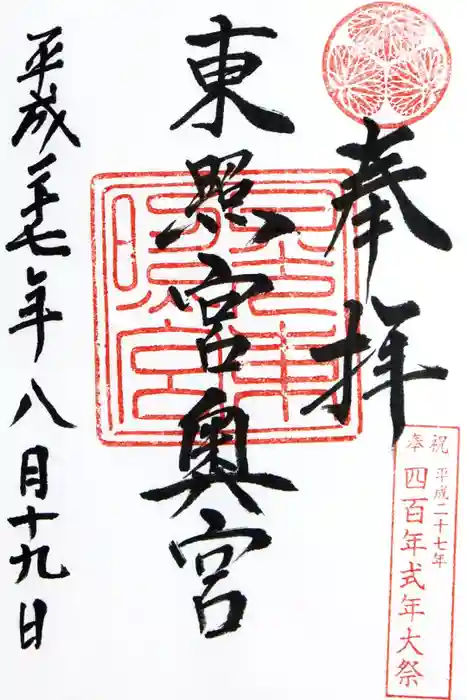 奉拝
東照宮奥宮
平成二十七年八月十九日
奉祝
平成二十七年
四百年式年大祭